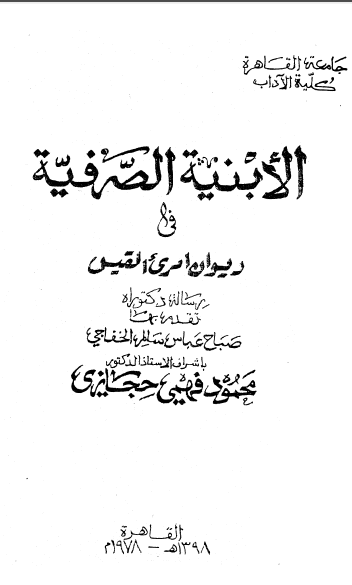 جامعة القاهرة
كلية الآداب
الأبنية الصرفية
في
ديوان امرئ القيس
رسالة دكتوراه
تقدم بها
صباح عباس سالم الخفاجي
بإشراف الاستاذ الدكتور
محمود فهمي حجازي
القاهرة
١٣٩٨هـ - ١٩٧٨م